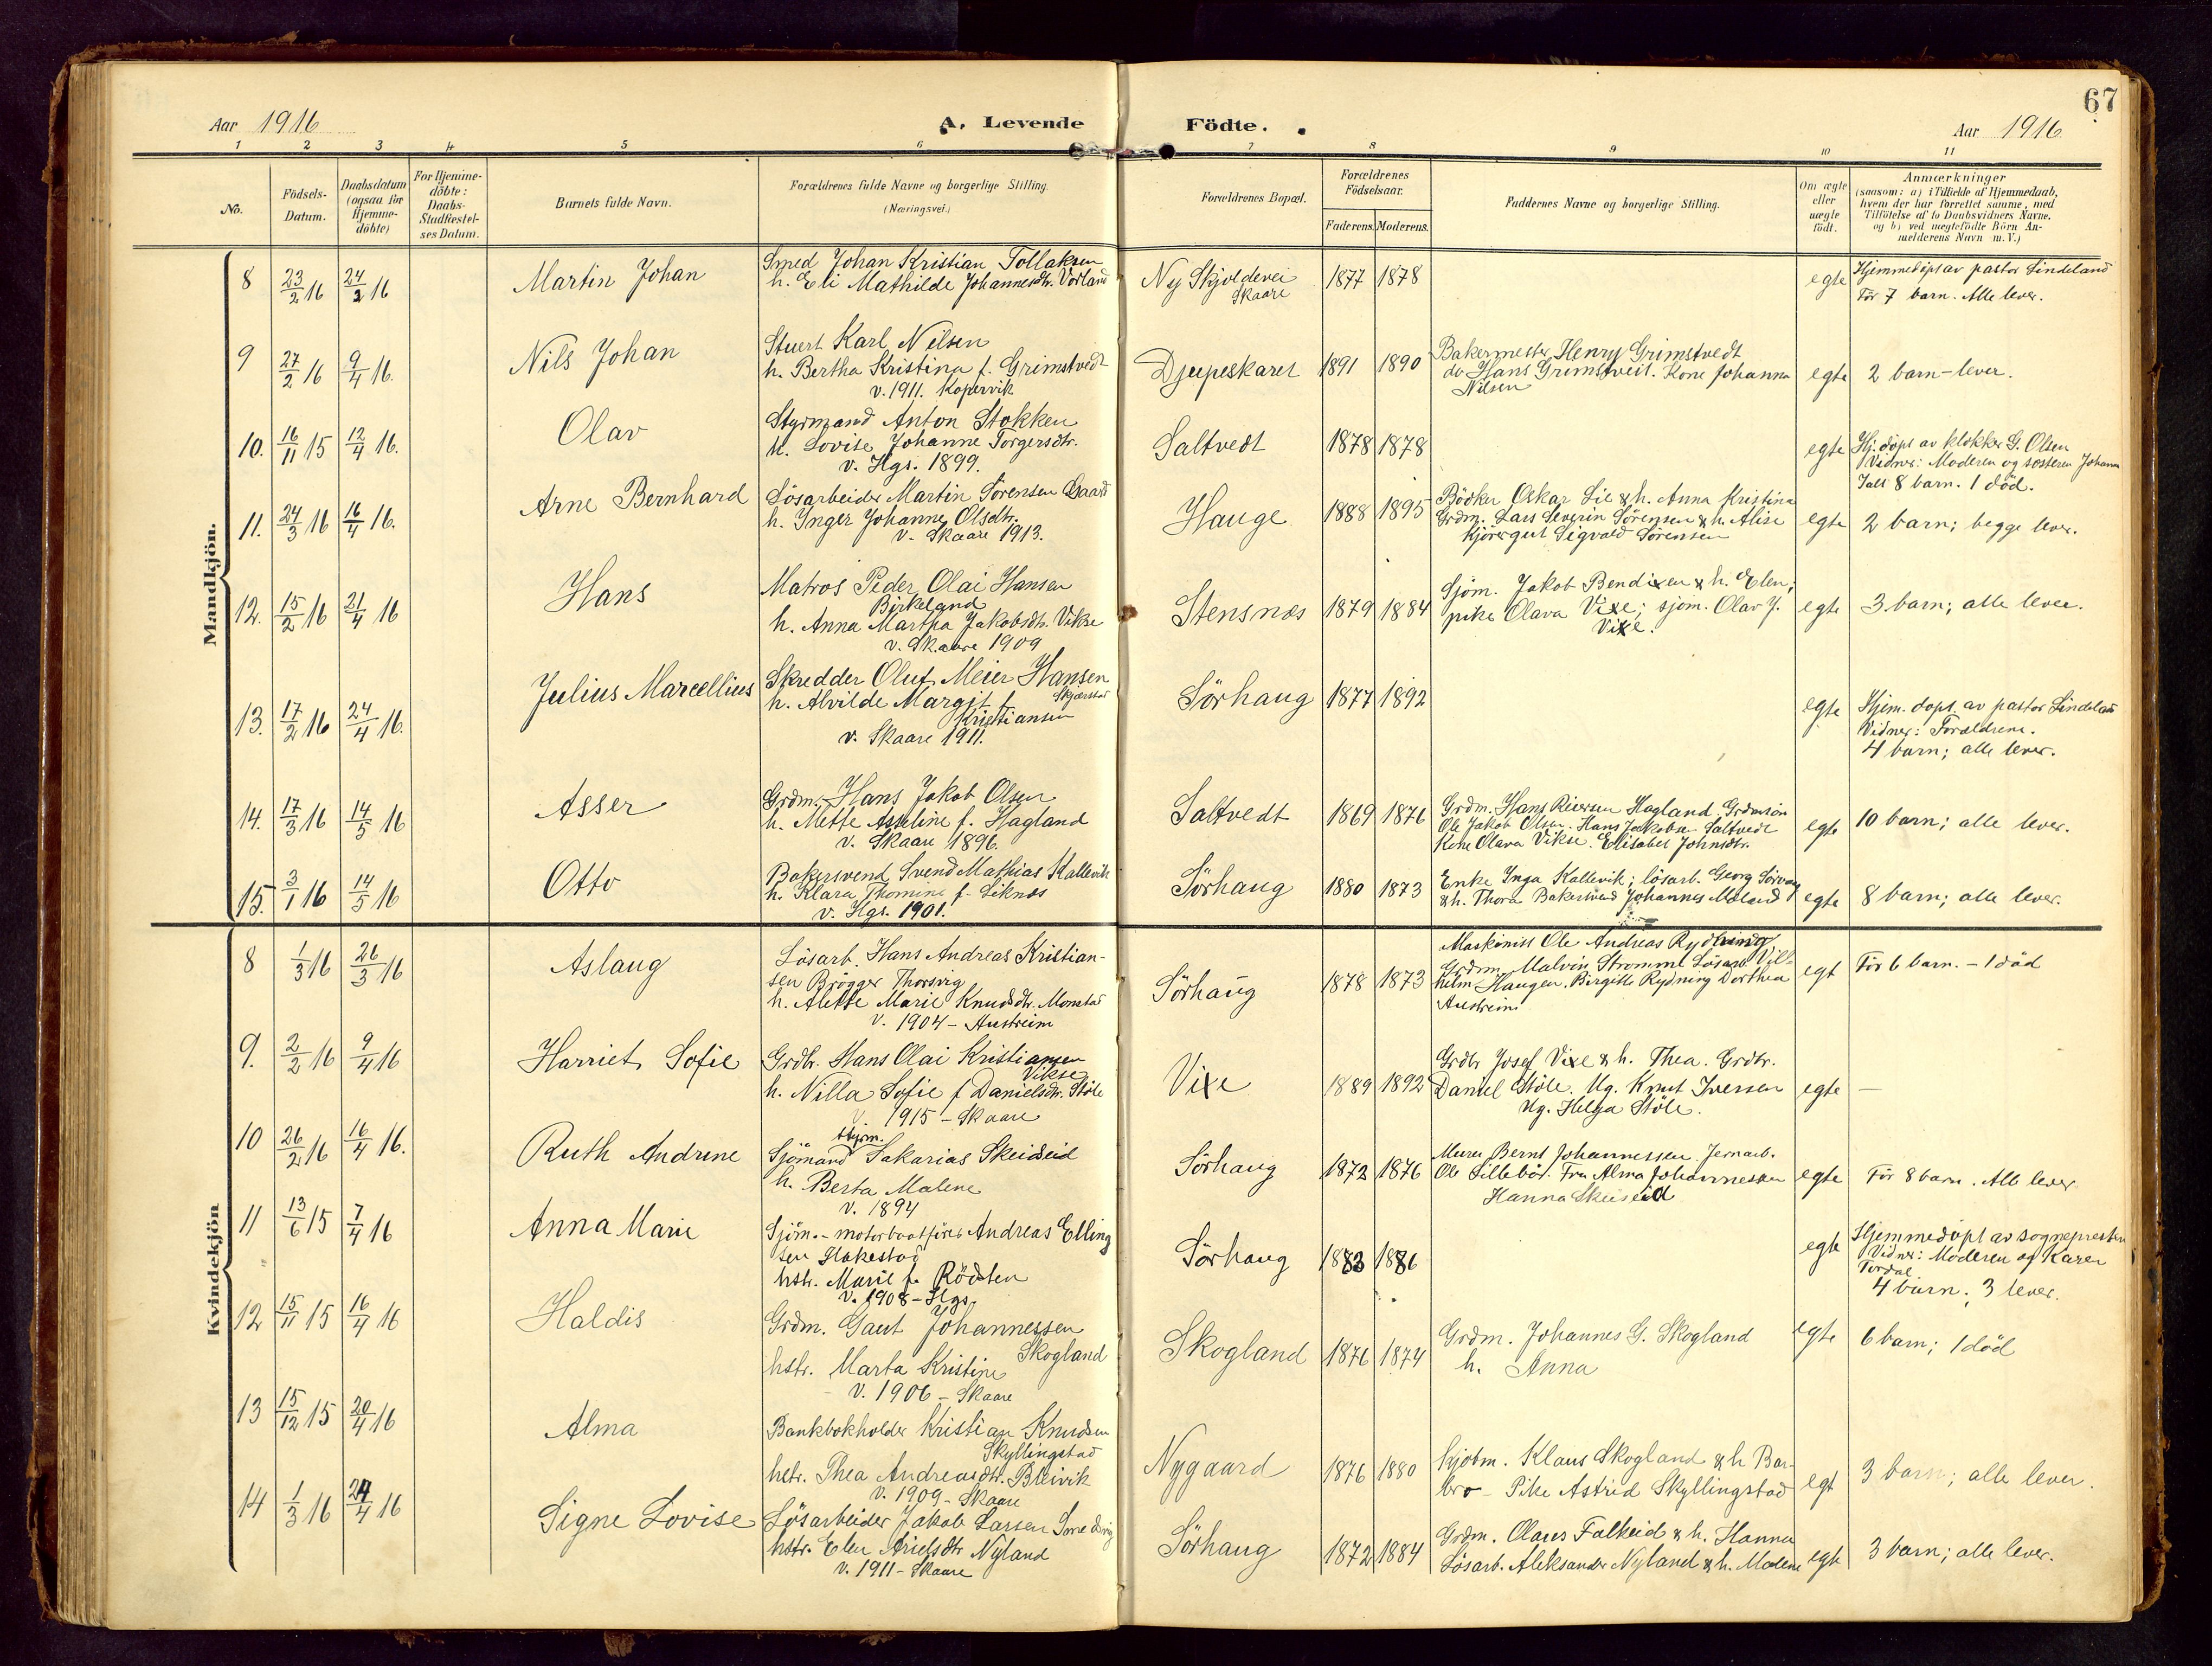 67
Aar 1916
A. Levende Födte.
Aar 1916
1 2 3 4 5 6 7 8 9 10 11
No.
Födsels-
Datum.
Daabsdatum
(ogsaa for
Hjemme-
döbte)
For Hjemme-
döbte:
Daabs-
Stadfæstel-
ses Datum.
Barnets fulde Navn.
Forældrenes fulde Navne og borgerlige Stilling.
(Næringsvei.)
Forældrenes Bopæl.
Forældrenes
Födselsaar.
Faderens. Moderens.
Faddernes Navne og borgerlige Stilling.
Om ægte
eller
uægte
födt.
Anmærkninger
(saasom: a) i Tilfælde af Hjemmedaab,
hvem der har forrettet samme, med
Tilföielse af to Daabsvidners Navne.
og b) ved uægtefödte Börn An-
melderens Navn m. V.)
Mandkjön.
8 23/2 16 24/2 16
Martin Johan
Smed Johan Kristian Tollaksen
h. Eli Mathilde Johannesdtr. Vorland
Ny Skjoldevei
Skaare
1877 1878
egte
Hjemmedöpt av pastor Lindeland
För 7 barn. Alle lever.
9 27/2 16 9/4 16.
Nils Johan
Stuert Karl Nilsen
h. Bertha Kristina f. Grimstvedt
v. 1911. Kopervik
Djupeskaret
1891 1890
Bakermester Henry Grimstvedt
do Hans Grimstveit. Kone Johanna
Nilsen
egte
2 barn - lever.
10. 16/11 15 12/4 16.
Olav
Styrmand Anton Stokken
h. Lovise Johanne Torgersdtr.
v. Hgs. 1899.
Saltvedt
1878 1878
egte
Hj. döpt av klokker G. Olsen
Vidner: Moderen og sösteren Johanna
Ialt 8 barn. 1 död.
11. 24/3 16 16/4 16.
Arne Bernhard
Lösarbeider Martin Sörensen Gaard
h. Inger Johanne Olsdtr.
v. Skaare 1913.
Hauge
1888 1895
Bödker Oskar Lie & h. Anna Kristina
Grdm. Lars Severin Sörensen & h. Alise
Kjöregut Sigvald Sörensen
egte
2 barn; begge lever.
12. 15/2 16 21/4 16
Hans
Matros Peder Olai Hansen
Birkeland
h. Anna Martha Jakobsdtr. Vikse
v. Skaare 1909
Stensnæs
1879 1884
Sjöm. Jakob Bendixen & h. Elen;
pike Olava Vixe; sjöm. Olav J.
Vixe.
egte
3 barn; alle lever.
13. 17/2 16 24/4 16.
Julius Marcellius
Skredder Oluf Meier Hansen
h. Alvilde Margit f. Kristiansen
v. Skaare 1911.
Sörhaug
1877 1892
egte
Hjem. döpt. av pastor Lindeland
Vidner: Forældrene.
4 barn; alle lever.
14. 17/3 16 14/5 16
Asser
Grdm. Hans Jakob Olsen
h. Mette Asseline f. Hagland
v. Skaare 1896.
Saltvedt
1869 1876
Grdm. Hans Riversen Hagland. Grdmsön
Ole Jakob Olsen. Hans Jakobsen Saltvedt
Kone Olava Vikse. Elisabet Johnsdtr.
egte
10 barn; alle lever.
15. 3/1 16 14/5 16
Otto
Bakersvend Svend Mathias Kallevik
h. Klara Thomine f. Liknes
v. Hgs. 1901.
Sörhaug
1880 1873
Enke Inga Kallevik; lösarb. Georg Sörvaag
& h. Thora. Bakersvend Johannes Meland
egte
8 barn; alle lever.
Kvindekjön
8 1/3 16 26/3 16
Aslaug
Lösarb. Hans Andreas Kristian-
sen Brögger Thorsvig
h. Alette Marie Knudsdtr. Monstad
v. 1904 - Austreim
Sörhaug
1878 1873
Maskinist Ole Andreas Rydning
Grdm. Malvin Stromme Lösarb. Vil-
helm Haugen. Birgitte Rydning Dorthea
Austreim
egt
För 6 barn. - 1 död
9. 2/2 16 9/4 16
Harriet Sofie
Grdbr. Hans Olai Kristiansen
Vikse
h. Nilla Sofie f Danielsdtr. Stöle
V. 1915 - Skaare
Vixe
1889 1892
Grdbr Josef Vixe & h. Thea. Grdbr.
Daniel Stöle. Ug. Knut Iversen
Ug. Helga Stöle.
egte
—
10 26/2 16 16/4 16.
Ruth Andrine
Styrm.
Sjömand Sakarias Skeiseid
h. Berta Malene
V. 1894
Sörhaug
1872 1876
Murer Bernt Johannessen. Jernarb.
Ole Lillebö. Fru Alma Johannessen
Hanna Skeiseid
egte
För 8 barn. Alle lever
11 13/6 15 7/4 16
Anna Marie
Sjöm. - motorbaatförer Andreas Elling
sen Stakestad
hstr. Marie f. Rödsten
V. 1908 - Hgs.
Sörhaug
1883 1886
egte
Hjemmedöpt av sogneprsten
Vidner: Moderen og Karen
Tordal
4 barn; 3 lever.
12 15/11 15 16/4 16
Haldis
Grdm. Gaut Johannessen
Skogland
hstr. Marta Kristine
V. 1906 - Skaare
Skogland
1876 1874
Grdm. Johannes G. Skogland
h. Anna
egte
6 barn; 1 död
13 15/12 15 20/4 16
Alma
Bankbokholder Kristian Knudsen
Skyllingstad
hstr. Thea Andreasdtr. Bleivik
V. 1909 - Skaare
Nygaard
1876 1880
Kjöbm. Klaus Skogland & h Bar-
bro - Pike Astrid Skyllingstad
egt
3 barn; alle lever.
14 1/3 16 24/4 16
Signe Lovise
Lösarbeider Jakob Larsen
hstr. Elen Arielsdtr Nyland
V. 1911 - Skaare
Sörhaug
1872 1884
Grdm. Olaus Falkeid & h. Hanna
Lösarb. Aleksander Nyland & h. Malene
egte
3 barn; alle lever.